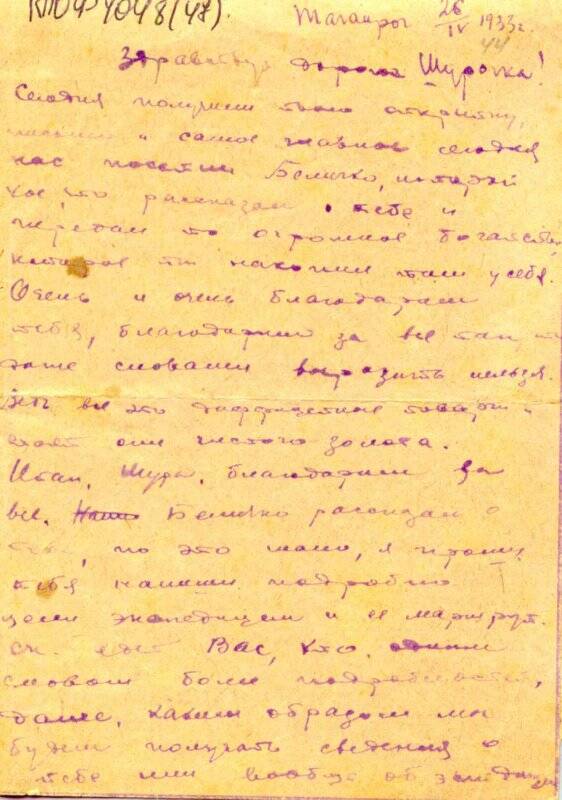 КП 4048(48).
Таганрог 26/IV 1933г.
44
Здравствуй дорогой Шурочка!
Сегодня получили твою открытку,
письмо и самое главное сегодня
нас посетил Величко, который
кое что рассказал о тебе и
передал то огромное богатство,
которое ты накопил там у себя.
Очень и очень благодарим
тебя, благодарим за всё так, что
даже словами выразить нельзя.
Ведь все это дефицитные товары и
стоят они чистого золота.
Итак, Шура, благодарим за
всё. Величко рассказал о
тебе, но это мало, я прошу
тебя напиши подробно
цели экспедиции и ее маршрут.
едет Вас, кто, одним
словом более подробностей,
даже, каким образом мы
будем получать сведения о
тебе или вообще об экспедиции